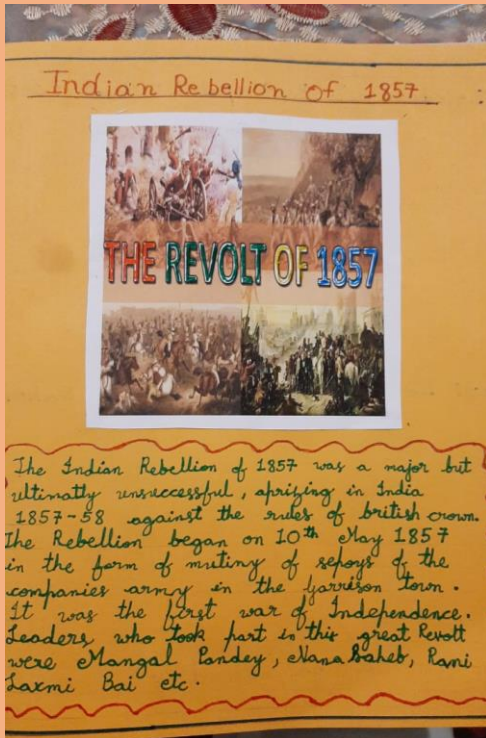 Indian Rebellion of 1857
THE REVOLT OF 1857
The Indian Rebellion of 1857 was a major but
ultimatly unsuccessful, aprizing in India
1857-58 against the rules of british crown.
The Rebellion began on 10th May 1857
in the form of mutiny of sepoys of the
companies army in the garrison town.
It was the first war of Independence.
Leaders who took part in this great Revolt
were Mangal Pandey, Nana Saheb, Rani
Laxmi Bai etc.